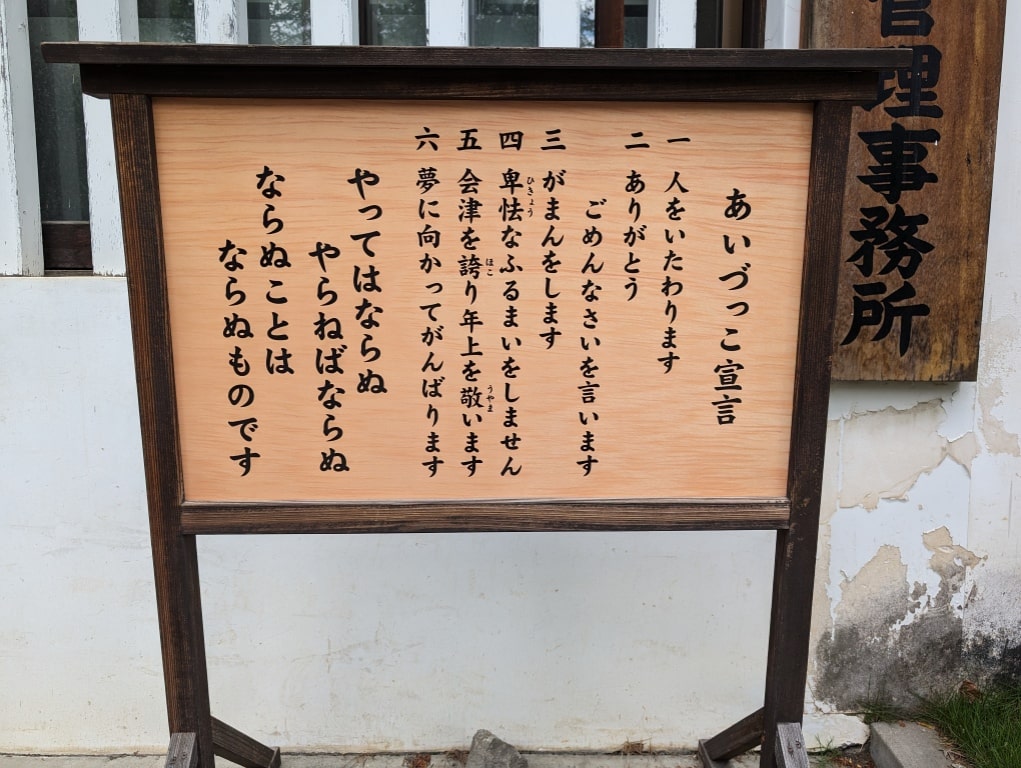 管理事務所
あいづっこ宣言
一 人をいたわります
二 ありがとう
ごめんなさいを言います
三 がまんをします
四 卑怯なふるまいをしません
ひきょう
五 会津を誇り年上を敬います
ほこ
うやま
六 夢に向かってがんばります
やってはならぬ
やらねばならぬ
ならぬことは
ならぬものです